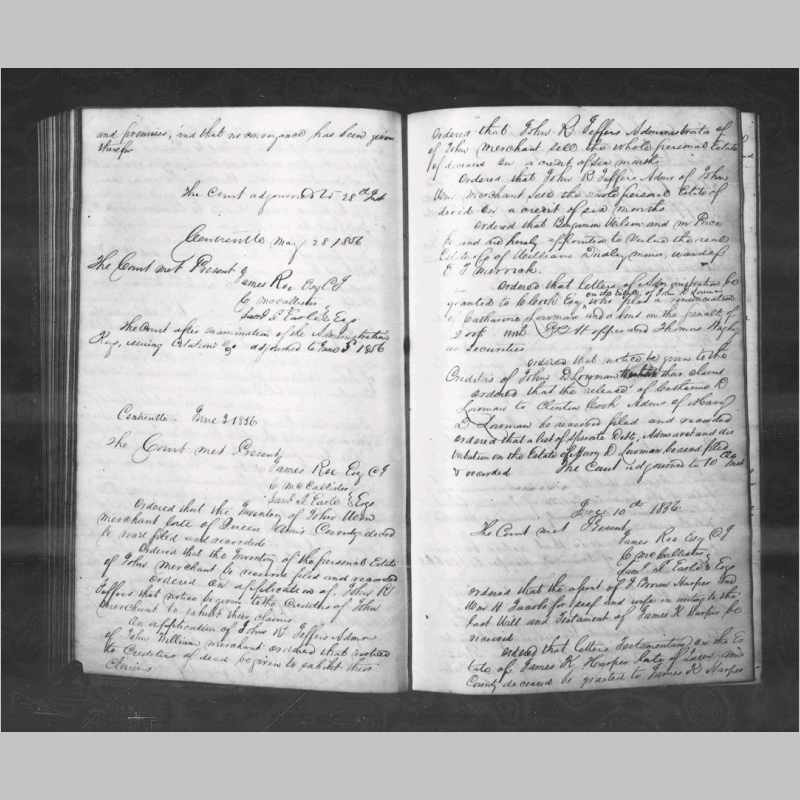 and promises, and that no conveyance has been given
therefor
The Court adjourned to 28th Inst
Centreville May 28 1856
The Court met Present
James Roe Esq C J
C McCallister
Saml S Earle Esqs
The Court after examination of the Administration
issuing Citation &c adjourned to June 3d 1856
Centreville June 3 1856
The Court met Present
James Roe Esq C J
C McCallister
Saml S Earle Esqs
Ordered that the Inventory of John Wm
Merchant late of Queen Anns County decd
be recd filed and recorded
Ordered that the Inventory of the personal Estate
of John Merchant be received filed and recorded
Ordered on application of John R
Jeffers that notice be given to the Creditors of John
Merchant to exhibit their claims
On application of John R Jeffers Admor
of John William Merchant ordered that notice
to Creditors of decd be given to exhibit their
Claims
Ordered that John R Jeffers Administrator of
of John Merchant sell the whole personal Estate
of deceased on a credit of six months
Ordered that John R Jeffers Admr of John
Wm Merchant sell the whole personal Estate of
decd on a credit of six months
Ordered that Benjamin and Wm Price
be and are hereby appointed to value the real
Estate of William Dudley minor, ward of
E T Merrick.
Ordered that letters of Administration be
on the Estate of
granted to C Cook Esq, who filed a renunciation
of Catharine Lowman and a bond in the penalty of
with Hopper and Thomas
as Securities
Ordered that notice be given to the
Creditors of John D Lowman their claims
Ordered that the release of Catharine R
Lowman to Clinton Cook Admr of
D Lowman be received filed and recorded
Ordered that a list of Sperate Debts, Adm acct and dis
tribution on the Estate of D. Lowman be recd filed
& recorded The Court adjourned to 10th Inst
10th 1856
The Court met Present
James Roe Esq C J
C McCallister
Saml S Earle Esqs
Ordered that the of Harper and
Wm H for self and wife in writing to the
Last Will and Testament of James K Harper be
received
Ordered that letters Testamentary on the Es
tate of James K Harper late of Queen Anns
County deceased be granted to James K Harper